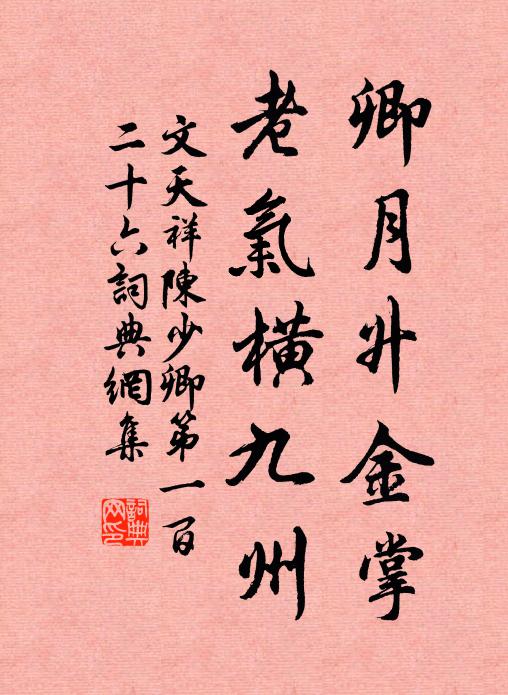 卿月升金掌
老氣橫九州
文天祥陳少卿第一百
二十六詞典網集
詞典
网印